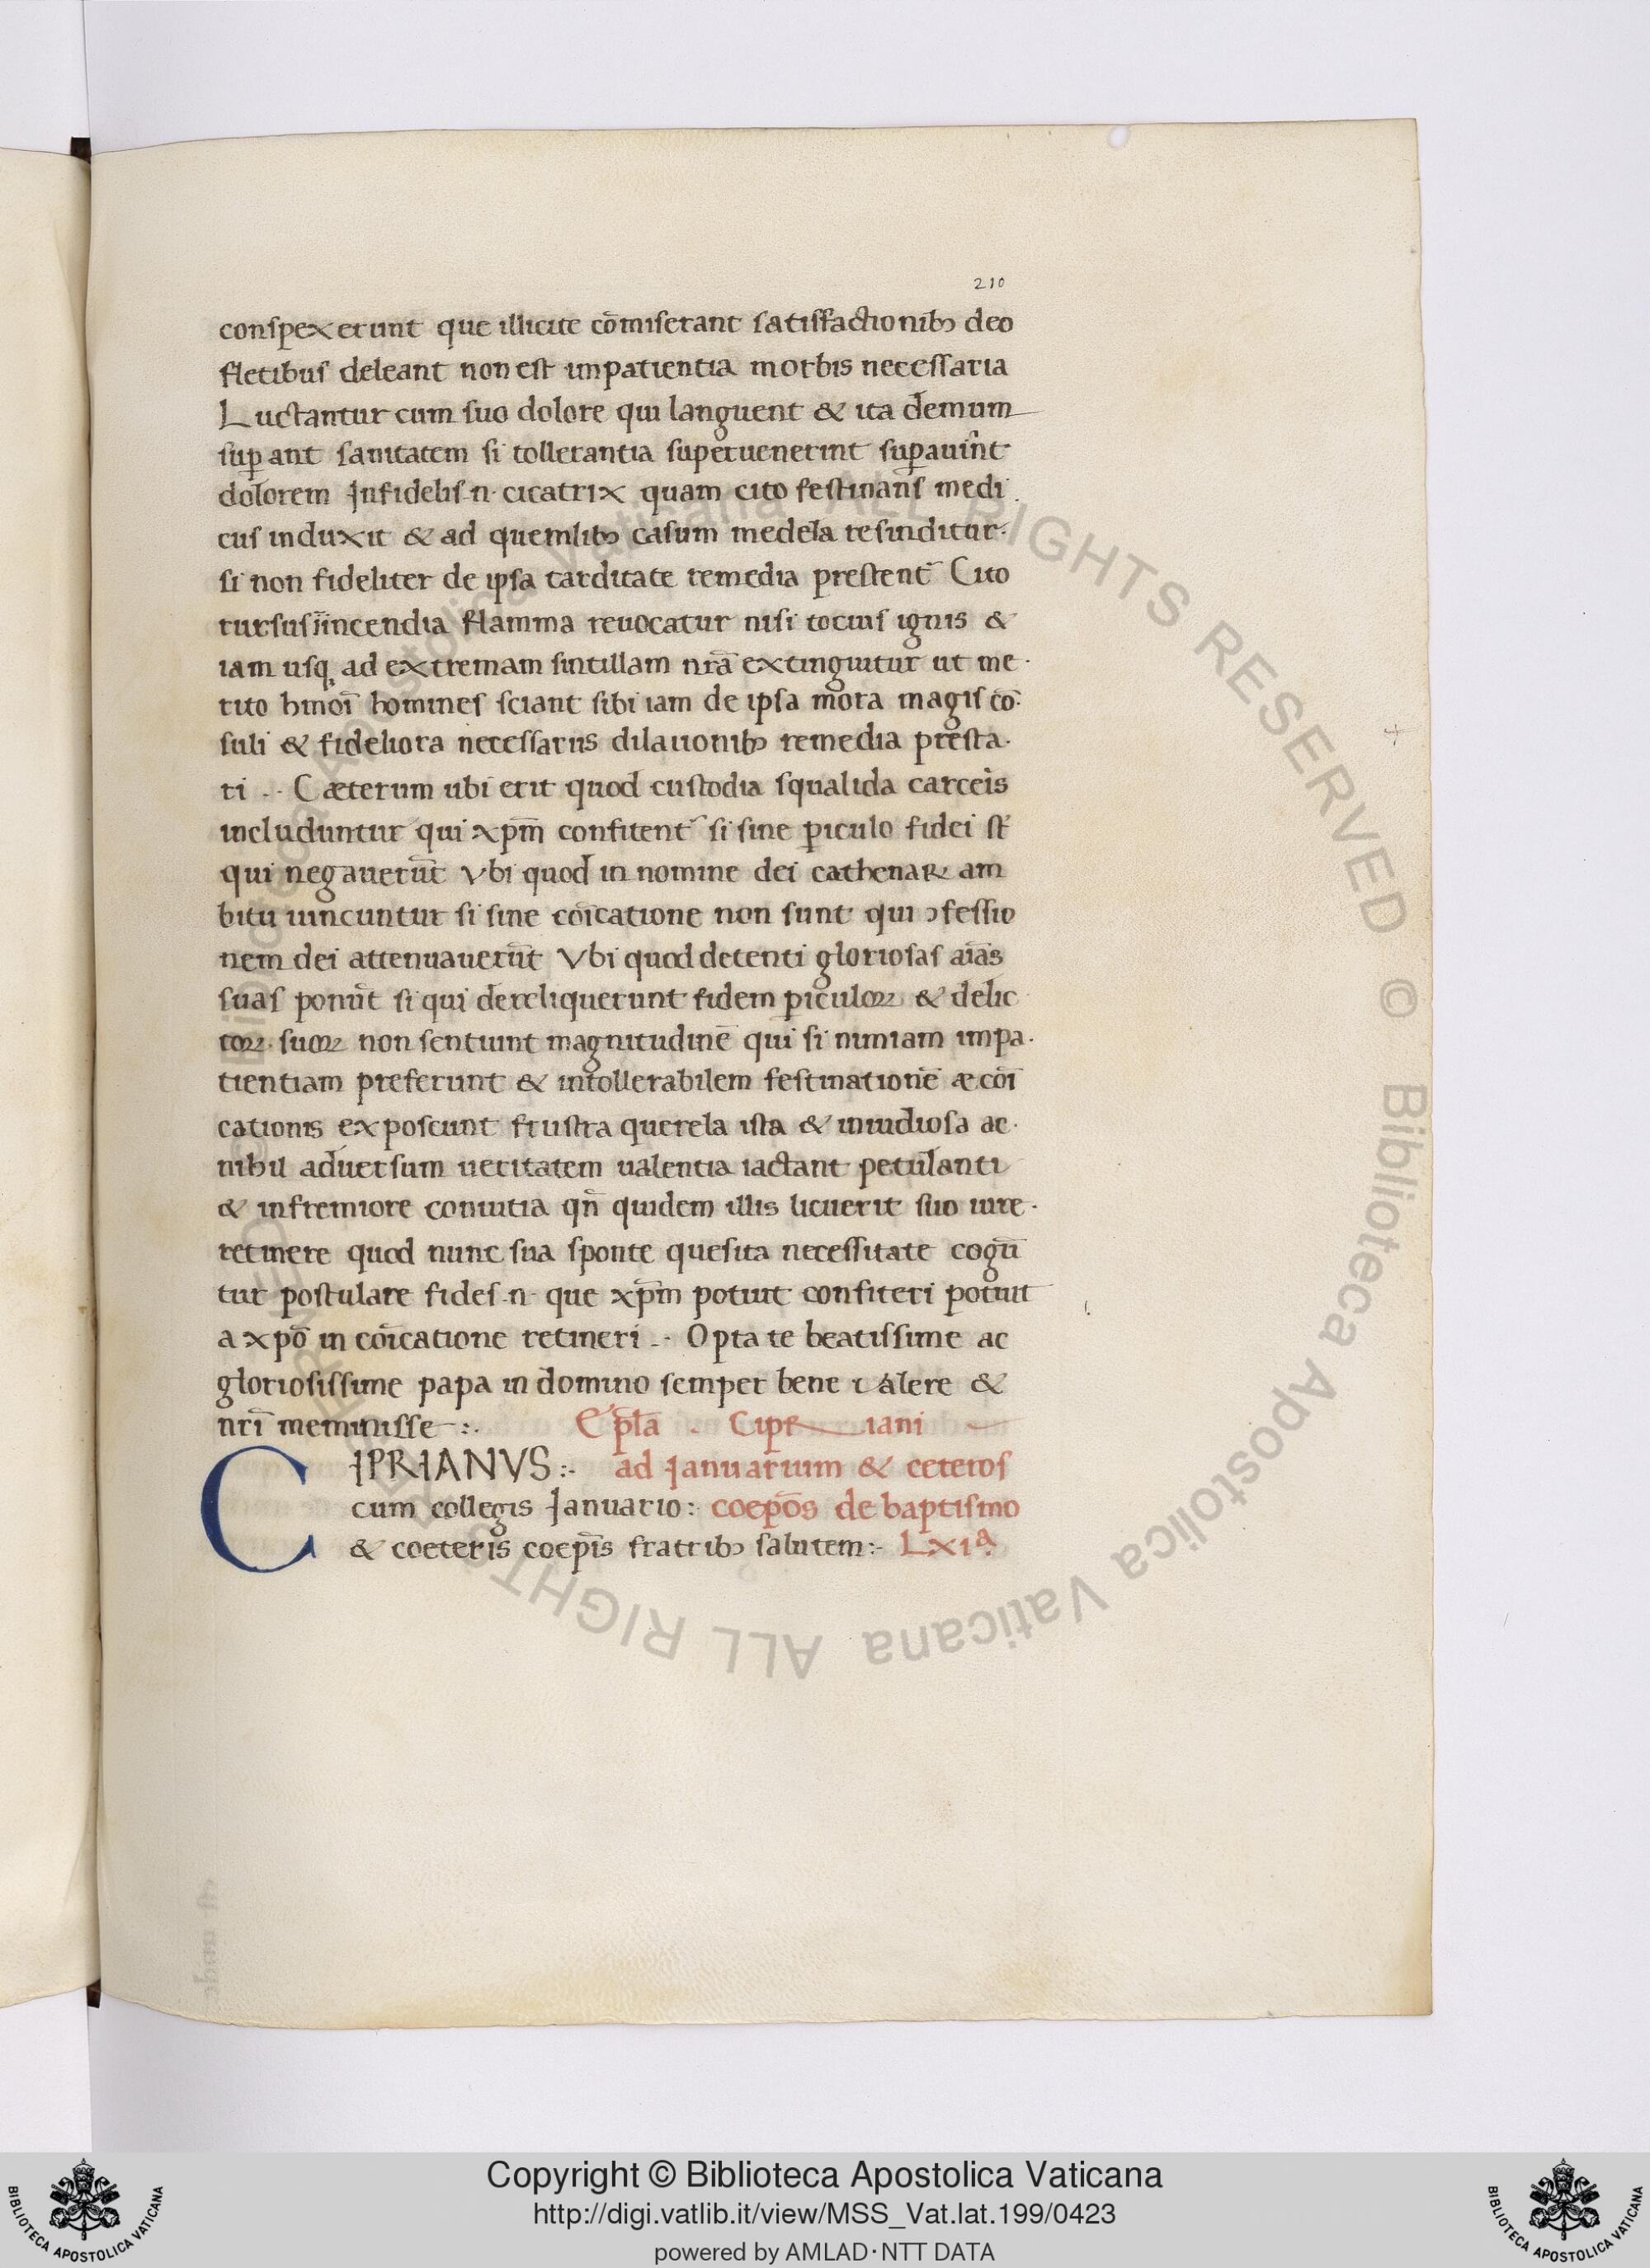 210
conspexerunt que illicite cōmiserant satisfactionibꝫ deo
fletibus deleant non est impatientia morbis necessaria
Luctantur cum suo dolore qui languent & ita demum
suꝑant sanitatem si tollerantia superuenerint suꝑauin̄t
dolorem Infidelis .n. cicatrix quam cito festinans medi
cus induxit & ad quemlibꝫ casum medela resinditur.
si non fideliter de ipsa tarditate remedia prestent᷑ Cito
rursus īincendia flamma reuocatur nisi tocius ignis &
iam usqꝫ ad extremam sintillam nrā extinguitur ut me.
rito hmoī homines sciant sibi iam de ipsa mora magis cō.
suli & fideliora necessariis dilationibꝫ remedia presta.
ri .. Cæterum ubi erit quod custodia squalida carceis
includuntur qui xpm̄ confitent᷑ si sine ꝑiculo fidei st̄
qui negauerūt Vbi quod in nomine dei cathenaꝝ am
bitu uincuntur si sine coīcatione non sunt qui ꝯfessio
nem dei attenuauerūt Vbi quod detenti gloriosas aīas
suas ponūt si qui dereliquerunt fidem ꝑiculoꝝ & delic
toꝝ. suoꝝ non sentiunt magnitudinē qui si nimiam impa.
tientiam preferunt & intollerabilem festinationē æ coī
cationis exposcunt frustra querela ista & inuidiosa ac.
nihil aduersum ueritatem ualentia iactant petulanti
& infremiore conuitia qn̄ quidem illis licuerit suo iure.
retinere quod nunc sua sponte quesita necessitate cogū
tur postulare fides .n. que xpm̄ potuit confiteri potuit
a xpō in coīcatione retineri .. Opta te beatissime ac
gloriosissime papa in domino semper bene ualere &
nrī meminisse :. Epl̄a . Cipriani
CIPRIANVS :. ad Januarium & ceteros
cum collegis Januario : coepōs de baptismo
& coeteris coepīs fratribꝫ salutem :. LXIᵃ.
© Biblioteca Apostolica Vaticana ALL RIGHTS RESERVED © Biblioteca Apostolica Vaticana ALL RIGHTS RESERVED
Copyright © Biblioteca Apostolica Vaticana
http://digi.vatlib.it/view/MSS_Vat.lat.199/0423
powered by AMLAD·NTT DATA
BIBLIOTECA APOSTOLICA VATICANA
BIBLIOTECA APOSTOLICA VATICANA